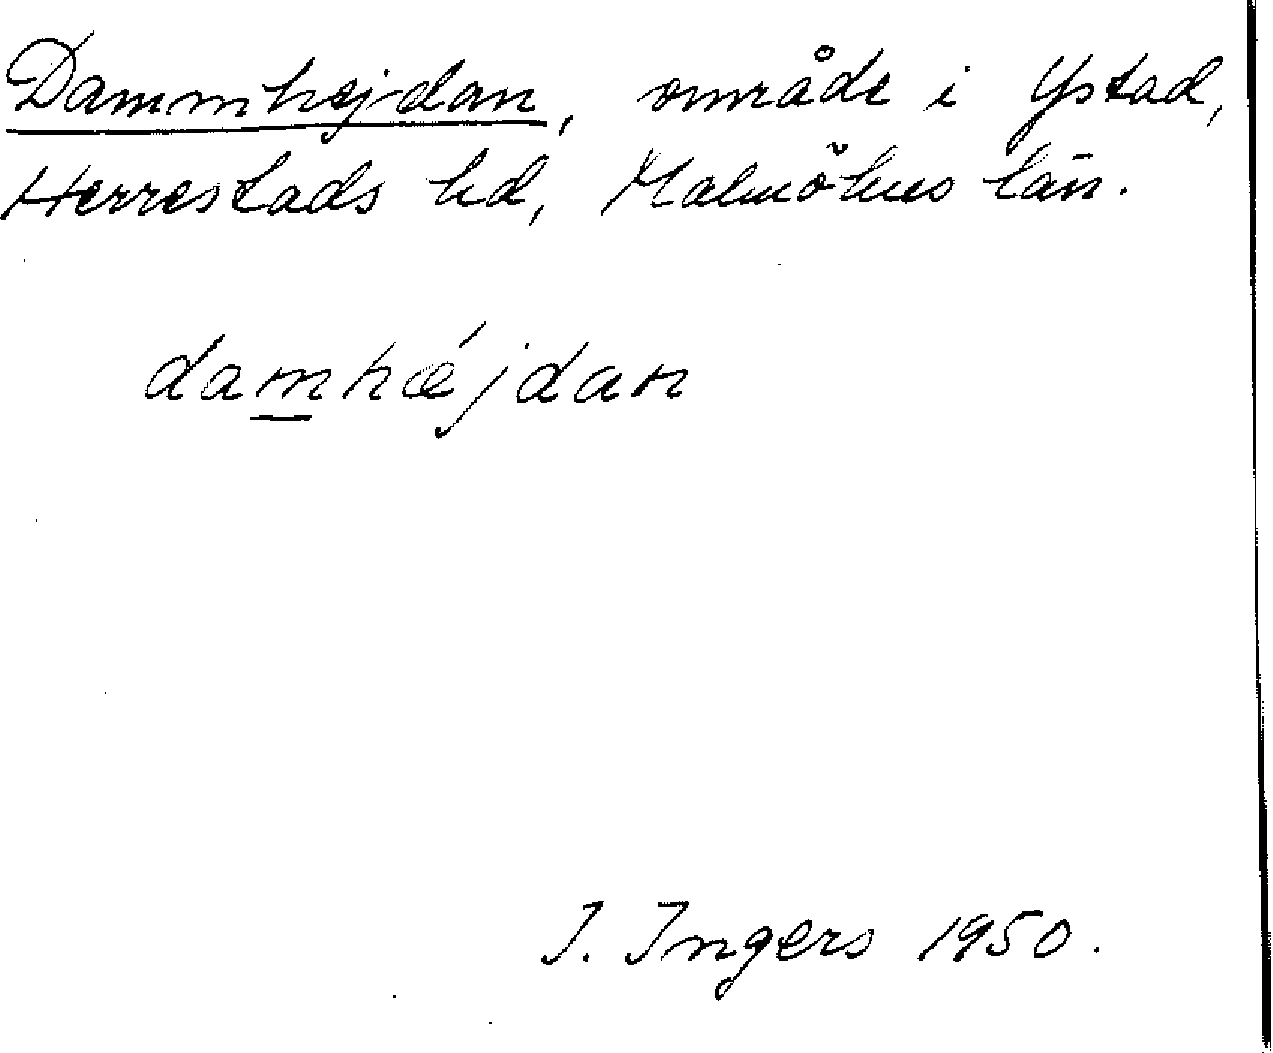 Dammhejdan, område i Ystad,
Herrestads hd, Malmöhus län.
damhǽjdan
I. Ingers 1950.